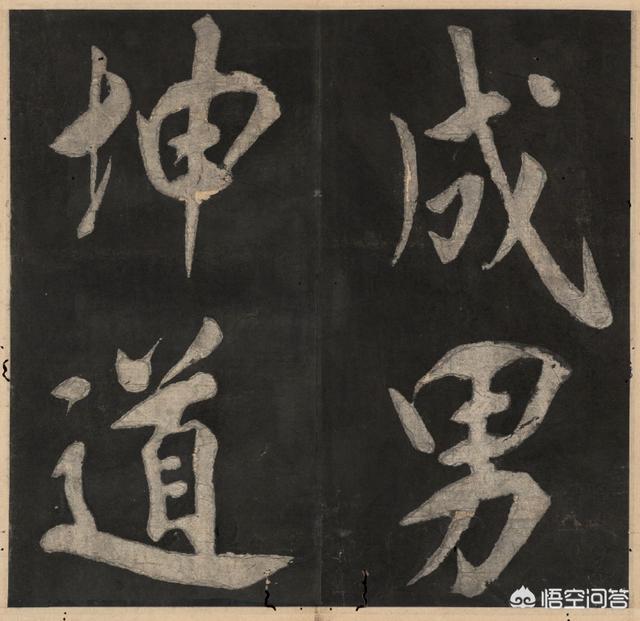 成男
坤道
悟空问答